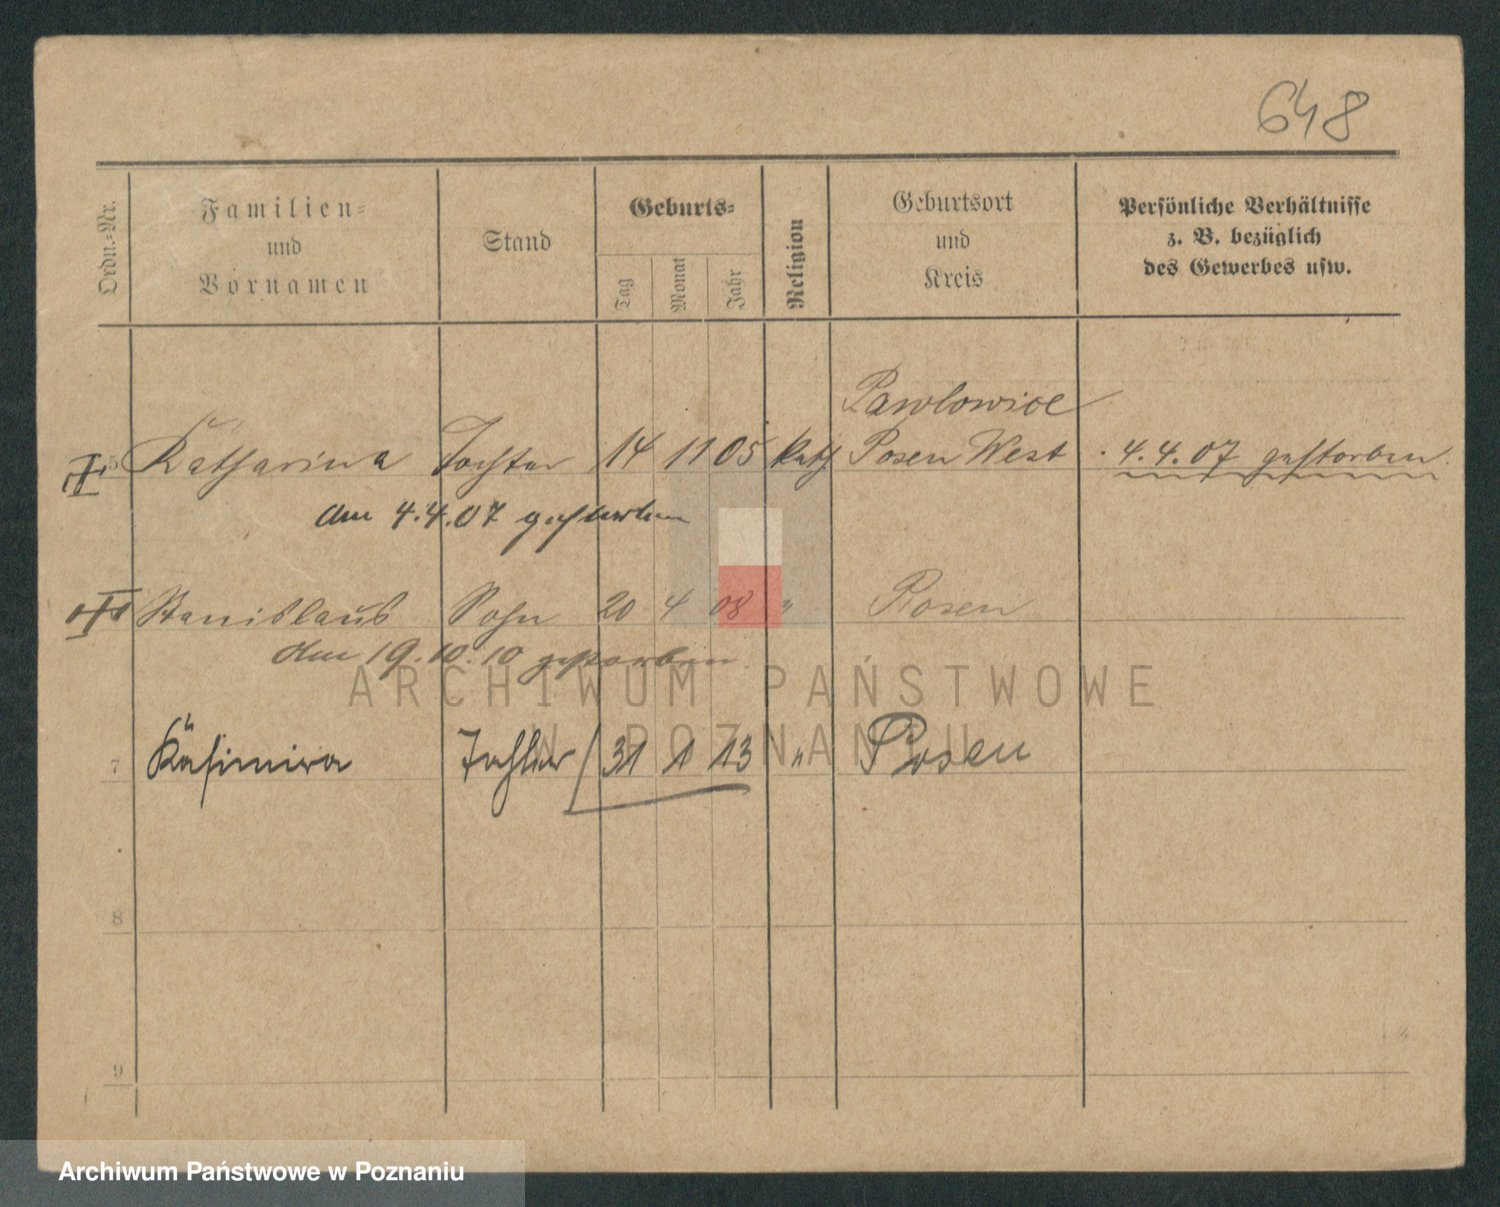 648
Ordn.-Nr.
Familien-
und
Vornamen
Stand
Geburts-
Tag
Monat
Jahr
Religion
Geburtsort
und
Kreis
Persönliche Verhältnisse
z. B. bezüglich
des Gewerbes usw.
Pawlowice
5 Katharina Tochter 14 11 05 kath Posen West 4.4.07 gestorben
am 4.4.07 gestorben
Stanislaus Sohn 20 4 08 " Posen
am 19.10.10 gestorben
ARCHIWUM PAŃSTWOWE
W POZNANIU
7 Kasimira Tochter 31 1 13 " Posen
8
9
Archiwum Państwowe w Poznaniu